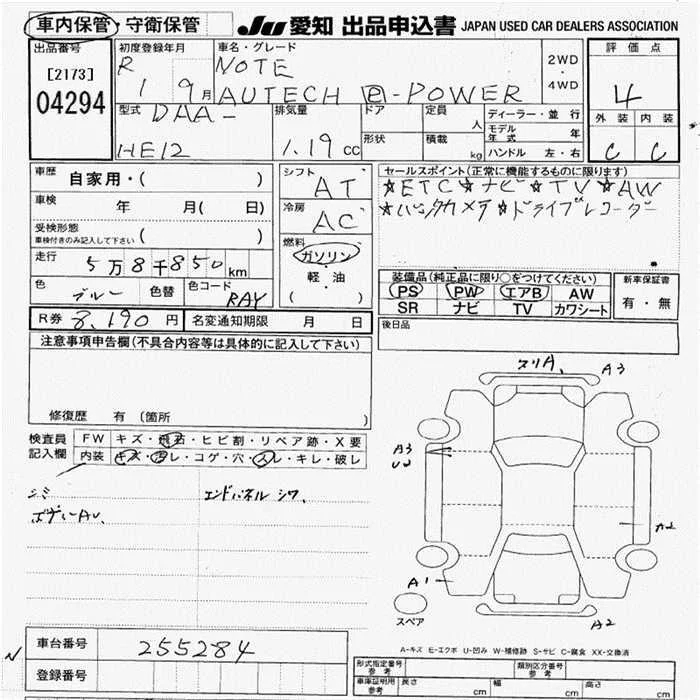 車内保管・守衛保管 JU 愛知 出品申込書 JAPAN USED CAR DEALERS ASSOCIATION
出品番号
[2173]
04294
初度登録年月
R 1 9月
車名・グレード
NOTE
AUTECH e-POWER
2WD
・
4WD
評価点
4
外装 内装
C C
型式 DAA-
HE12
排気量
1.19 cc
ドア
形状
定員
人
積載
kg
ディーラー・並行
モデル年式 年
ハンドル 左・右
車歴 自家用・( )
車検 年 月( 日)
受検形態
車検付きのみ記入して下さい ( )
走行 5万8千850km
色 ブルー 色替 色コード RAY
R券 8,190円 名変通知期限 月 日
シフト
AT
冷房
AC
燃料
ガソリン
・
軽・油
( )
セールスポイント(正常に機能するものに限ります)
☆ETC☆ナビ☆TV☆AW
☆バックカメラ☆ドライブレコーダー
装備品(純正品に限り○をつけてください)
PS PW エアB AW
SR ナビ TV カワシート
新車保証書
有・無
後日品
注意事項申告欄(不具合内容等は具体的に記入して下さい)
修復歴 有(箇所 )
検査員記入欄
FW キズ・飛石・ヒビ割・リペア跡・X要
内装 キズ・汚レ・コゲ・穴・スレ・キレ・破レ
シミ
ボデーAU、
エンドパネル シワ、
スリA、 A3
A3
U2
A2
A1
A2
スペア
A-キズ E-エクボ U-凹み W-補修跡 S-サビ C-腐食 XX-交換済
N
車台番号 255284
登録番号
形式指定番号 参考
類別区分番号 参考
車庫証明用 参考 長さ cm 幅 cm 高さ cm